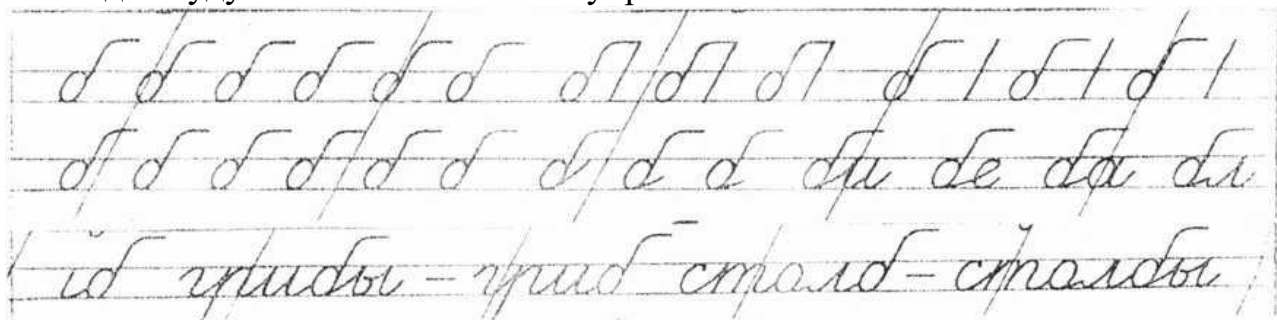 б б б б б б б| б| б| б | б | б |
б б б б б б б б б би бе ба бл
йб грибы – гриб столб – столбы